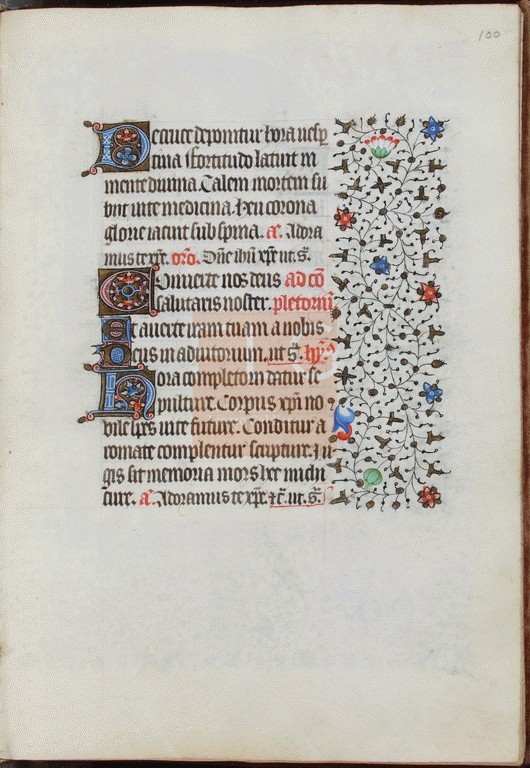 100
De cruce deponitur hora uesp̄
tina ⁊ fortitudo latuit in
mente diuina. Talem mortem su
biit uite medicina. heu corona
glorie iacuit sub spina. a͞. Adora
mus te xp̄e. or̄o. Dn̄e ih̄u xp̄e ut. s̄.
Conuerte nos deus ad cō
salutaris noster. pletoriū
Et auerte iram tuam a nobis
Deus in adiutorium. ut s̄. hȳ.
Hora completorij datur se
pulture. Corpus xp̄i no
bile spes uite future. Conditur a
romate complentur scripture. Iu
gis sit memoria mors hec michi
cure. a͞. Adoramus te xp̄e ⁊c̄. ut. s̄.